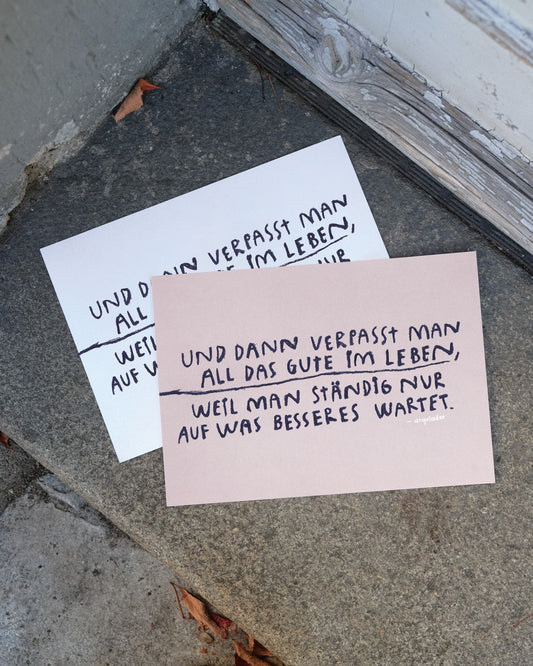 UND DANN VERPASST MAN
ALL DAS GUTE IM LEBEN,
WEIL MAN STÄNDIG NUR
AUF WAS BESSERES WARTET.
UND DANN VERPASST MAN
ALL GUTE IM LEBEN,
WEIL NUR
AUF W